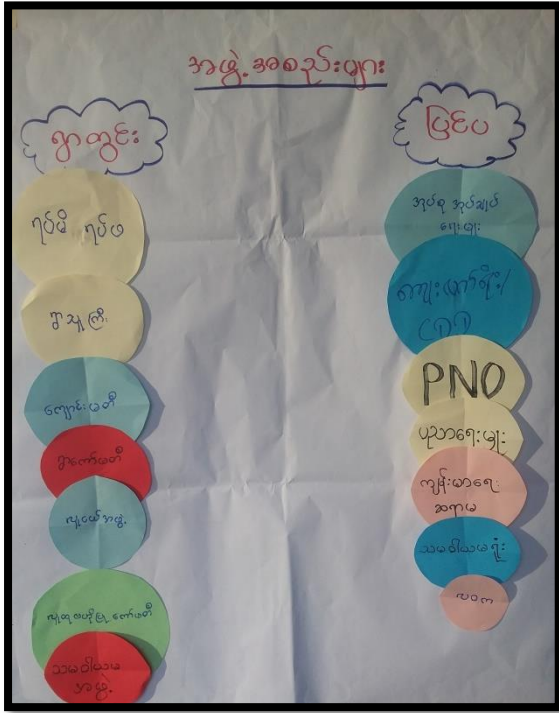 အဖွဲ့အစည်းများ
ရွာတွင်း
ရပ်မိ ရပ်ဖ
ရွာသူကြီး
ကျောင်းမတီ
ရွာကော်မတီ
လူငယ်အဖွဲ့
လူထုဗဟိုပြု ကော်မတီ
သမဝါယမ
အဖွဲ့
ပြင်ပ
အုပ်စု အုပ်ချုပ်
ရေးမှူး
ကျေးဖက်ဦး/
PNO
ပညာရေးမှူး
ကျန်းမာရေး
ဆရာမ
သမဝါယမရုံး
လဝက